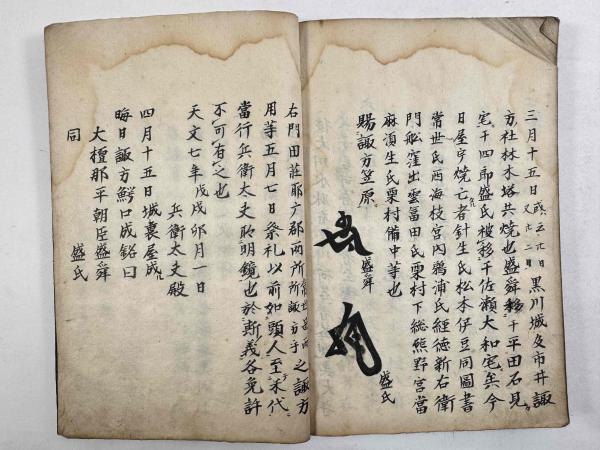 三月十五日或五九日又廿二日黒川城及市井諏
方社林木塔共焼也盛舜移于平田石見
宅十四郎盛氏被移于佐瀬大和宅矣今
日屋宇焼亡者針生氏松本伊豆同圖書
常世氏西海枝宮内鵜浦氏経徳新右衛
門舩窪出雲冨田氏栗村下総熊野宮當
麻須生氏栗村備中等也
賜諏方笠原
盛舜
盛氏
右門田荘耶广郡両所之諏方
用等五月七日祭礼以前如頭人至末代
當行兵衛太夫耿明鏡也於斯義各免許
不可有之也
天文七年戊戌卯月一日
兵衛太夫殿
四月十五日城裏屋成
晦日諏方鰐口成銘曰
大檀那平朝臣盛舜
同 盛氏